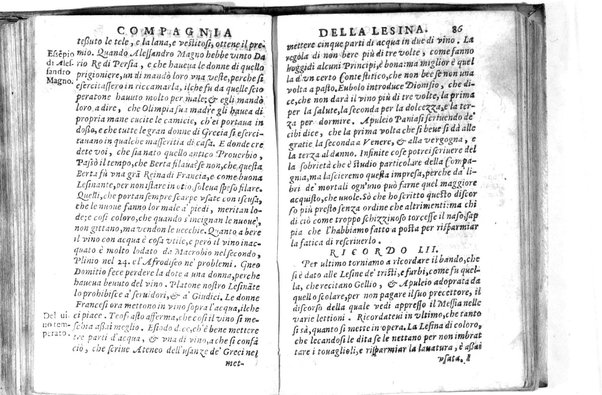 COMPAGNIA
tessuto le tele, e la lana, e vestitosi, ottene il pre-
Esẽpio mio. Quando Alessandro Magno hebbe vinto Da
di Ales- rio Re di Persia, e che haueua le donne di quello
sandro prigioniere, un dì mandò loro vna veste, perche si
Magno. essercitassero in riccamarla, ilche fu da quelle so
peratone hauuto molto per male, & egli mandò
loro à dire, che Olimpia sua madre gli hauea di
propria mano cucite le camicie, ch'ei portaua in
dosso, e che tutte le gran donne di Grecia si eserci-
tauano in qualche masseritia di casa. E donde cre
dete voi, che sia nato quello antico Prouerbio,
Passò il tempo, che Berta filaua? se non, che questa
Berta fù vna grã Reina di Francia, e come buona
Lesinante, per non istare in otio, soleua spesso filare.
Quelli, che portan sempre scarpe vsate con iscusa,
che le nuoue fanno lor male a' piedi, meritan lo-
de; e così coloro, che quando s'insegnan le nuoue, non
gittano, ma vendon le vecchie. Quanto a bere
il vino con acqua è cosa vtile, e però il vino inac-
quato è molto lodato da Macrobio nel secondo,
Plinio nel 24. el' Afrodiseo ne' problemi. Gneo
Domitio fece perdere la dote a una donna, perche
haueua beuuto del vino. Platone nostro Lesinãte
lo prohibisce a' seruidori, & a' Giudici. Le donne
Francesi ora mettono in vino l'acqua, ilche gli
Del ui- piace. Teofrasto afferma, che così il vino si me-
no tem- schia assai meglio. Esiodo dice, ch'è bene mettere
perato. tre parti d'acqua, & vna di vino, a chi si confà
ciò, che scriue Ateneo dell'usanze de' Greci nel
met-
DELLA LESINA. 86
mettere cinque parti di acqua in due di vino. La
regola di non bere piu di tre volte, come fanno
hoggidì alcuni Principi, è bona: ma miglior è quel
la d'vn certo Contestitico, che non bee se non una
volta a pasto. Eubolo introduce Dionisio, che di-
ce, che non darà il vino più di tre volte, la prima
per la salute, la seconda per la dolcezza, e la ter-
za per dormire. Apuleio Paniasi scriuendo de'
cibi dice, che la prima volta che si beue si dà alle
gratie la seconda a Venere, & alla vergogna, e
la terza al danno. Infinite cose potrei scriuere del
la sobrietà che è studio particolare della Compa-
gnia, ma lascieremo questa impresa, perche da' li-
bri de' mortali ogn'uno può farne quel maggiore
acquisto, che vuole. Sò che ho scritto questo discor
so più presto senza ordine che altrimenti: ma chi
di ciò come troppo schizzinoso torcesse il naso, sap
pia che l'habbiamo fatto a posta per risparmiar
la fatica di scriuerlo.
RICORDO LII.
Per ultimo torniamo a ricordare il bando, che
si è dato alle Lesine de' tristi, e furbi, come fu quel-
la, che recitano Gellio, & Apuleio adoprata da
quello scolare, per non pagare il suo precettore, il
discorso della quale vedrà appresso il Messia nelle
varie lettioni. Ricordateui in vltimo, che tanto
si sà, quanto si mette in opera. La Lesina di coloro,
che lecandosi le dita se le nettano per non imbrat
tare i touaglioli, e risparmiar la lauatura, è assai
vsata, è